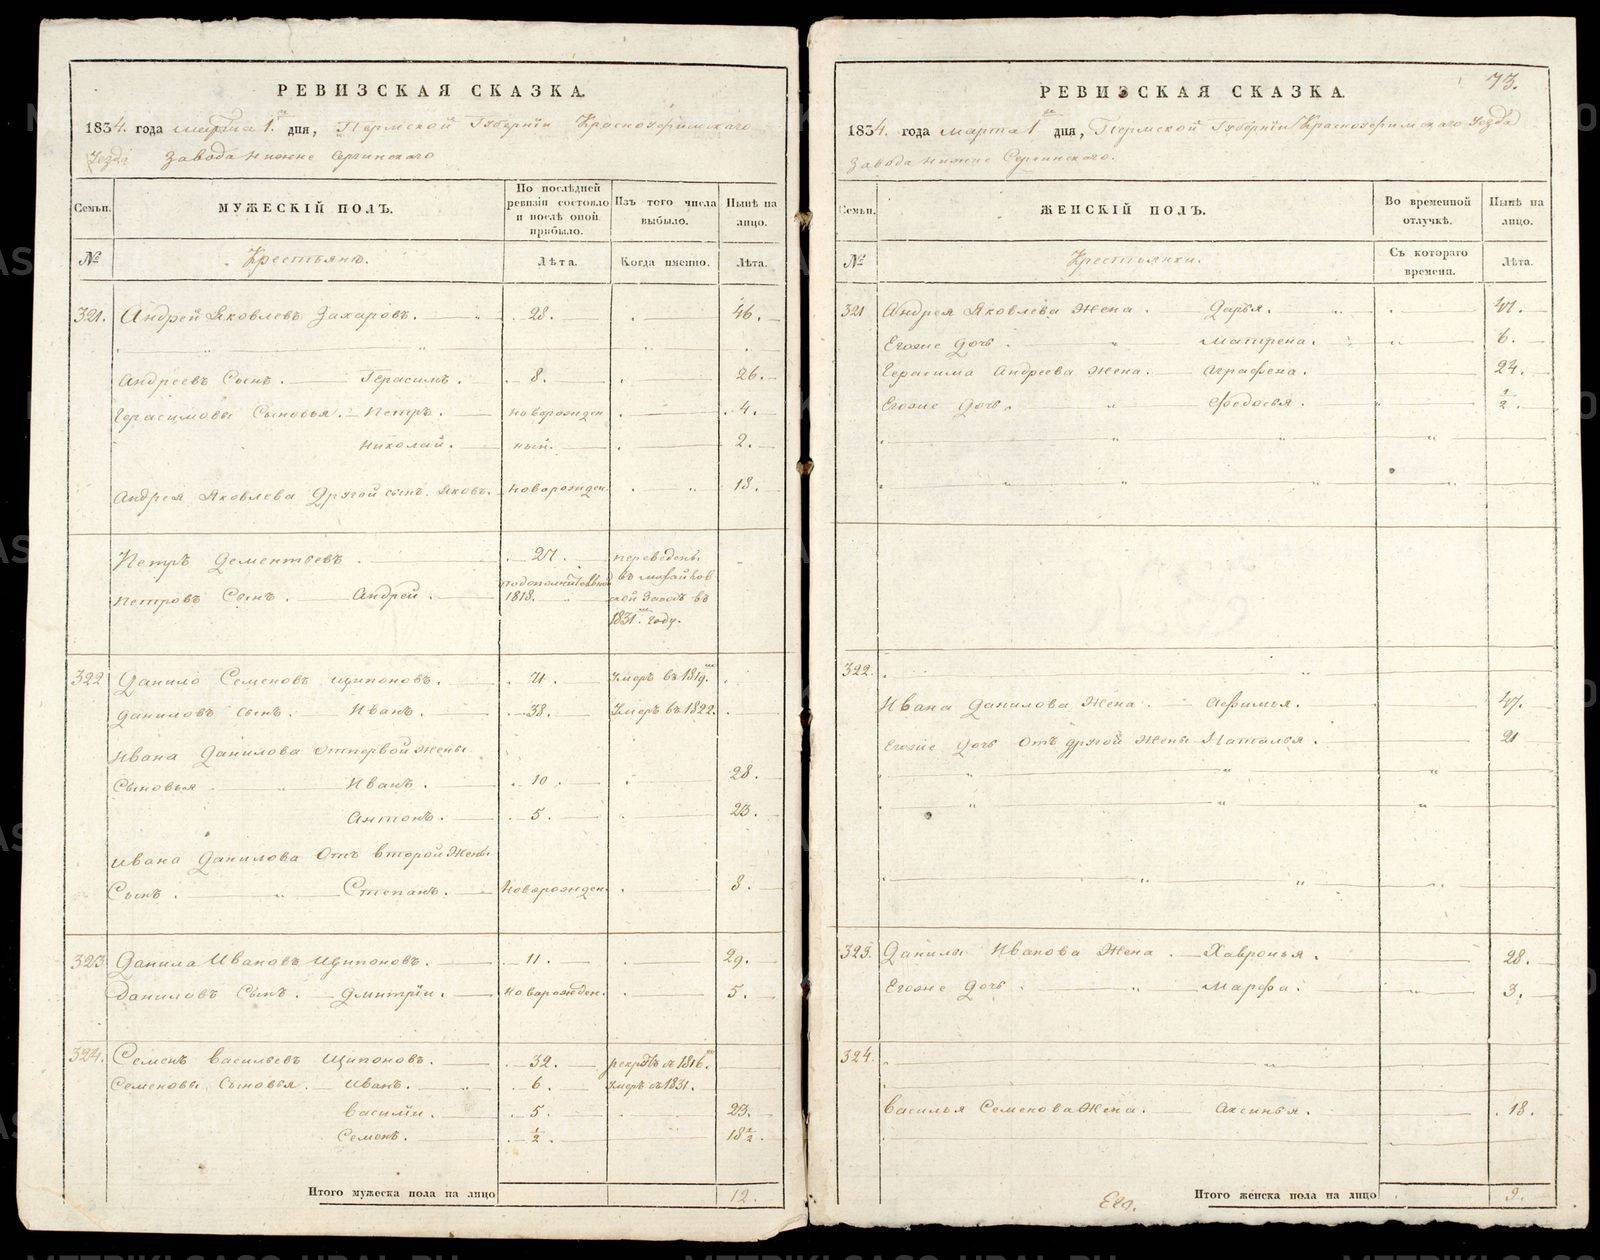 РЕВИЗСКАЯ СКАЗКА.
1834. года марта 1. дня, Пермской Губернiи Красноуфимскаго
Уезда Завода Нижне Сергинскаго
Семьи. МУЖЕСКIЙ ПОЛЪ. По послѣдней ревизiи состояло и послѣ оной прибыло. Изъ того числа выбыло. Нынѣ на лицо.
№ Крестьянѣ. Лѣта. Когда именно. Лѣта.
321. Андрей Яковлевъ Захаровъ. 28. 46.
Андреевъ Сынъ. Герасимъ. 8. 26.
Герасимовы Сыновья. Петръ. новорожден 4.
Николай. ный. 2.
Андрея Яковлева Другой сынъ. Яковъ. новорожден. 18.
Петръ Дементьевъ 27. переведены
Петровъ Сынъ. Андрей. 1818. въ
ской Заводъ въ
1831. году.
322 Данило Семеновъ Щипоновъ. 71. Умеръ въ 1819.
Даниловъ сынъ. Иванъ. 38. Умеръ въ 1822.
Ивана Данилова отпервой жены
Сыновья Иванъ. 10. 28.
Антонъ. 5. 23.
Ивана Данилова Отъ второй жены
Сынъ. Степанъ. Новорожден. 8.
323 Данила Ивановъ Щипоновъ. 11. 29.
Даниловъ Сынъ. Дмитрiи. новорожден. 5.
324. Семенъ Васильевъ Щипоновъ. 32. рекрутъ 1816.
Семеновы Сыновья. Иванъ. 6. Умеръ 1831.
Василiи. 5. 23.
Семенъ. ½. 18½.
Итого мужеска пола на лицо 12.
73.
РЕВИЗСКАЯ СКАЗКА.
1834. года марта 1 дня, Пермской Губернiи Красноуфимскаго Уезда
Завода Нижне Сергинскаго.
Семьи. ЖЕНСКIЙ ПОЛЪ. Во временной отлучкѣ. Нынѣ на лицо.
№ Крестьянки. Съ котораго времени. Лѣта.
321 Андрея Яковлева Жена. Дарья. 47.
Егоже Дочь. Матрена. 6.
Герасима Андреева Жена. Аграфена. 24.
Егоже Дочь. Федосья. ½.
322.
Ивана Данилова Жена. Афимья. 47.
Егоже Дочь Отъ другой Жены Наталья. 21
323. Данилы Иванова Жена. Хавронья. 28.
Егоже Дочь. Марфа. 3.
324.
Василья Семенова Жена. Аксинья. 18.
Итого женска пола на лицо 9.